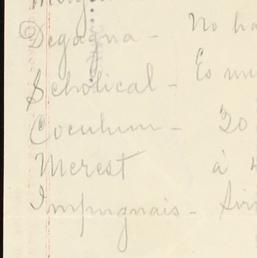 Degagna - No ha
Scholical - Es mu
Coculum - 20
Merest à
Impugnais -